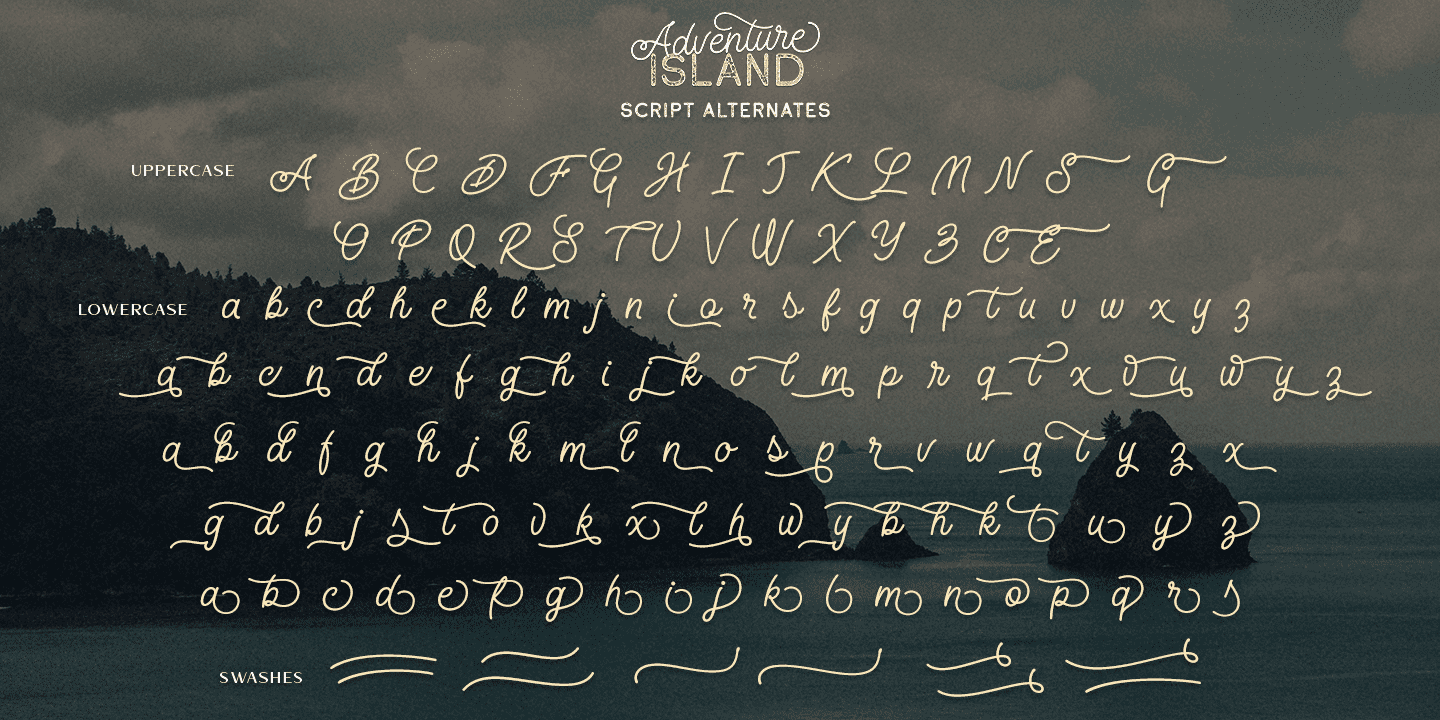 Adventure
ISLAND
SCRIPT ALTERNATES
UPPERCASE A B C D F G H I J K L M N S G
O P Q R S T U V W X Y Z C E
LOWERCASE a b c d h e k l m j n i o r s f g q p t u v w x y z
a b c n d e f g h i j k o l m p r q t x v u w y z
a b d f g h j k m l n o s p r v w q t y z x
g d b j s t o v k x l h w y b h k t u y z
a b c d e p g h i j k l m n o p q r s
SWASHES